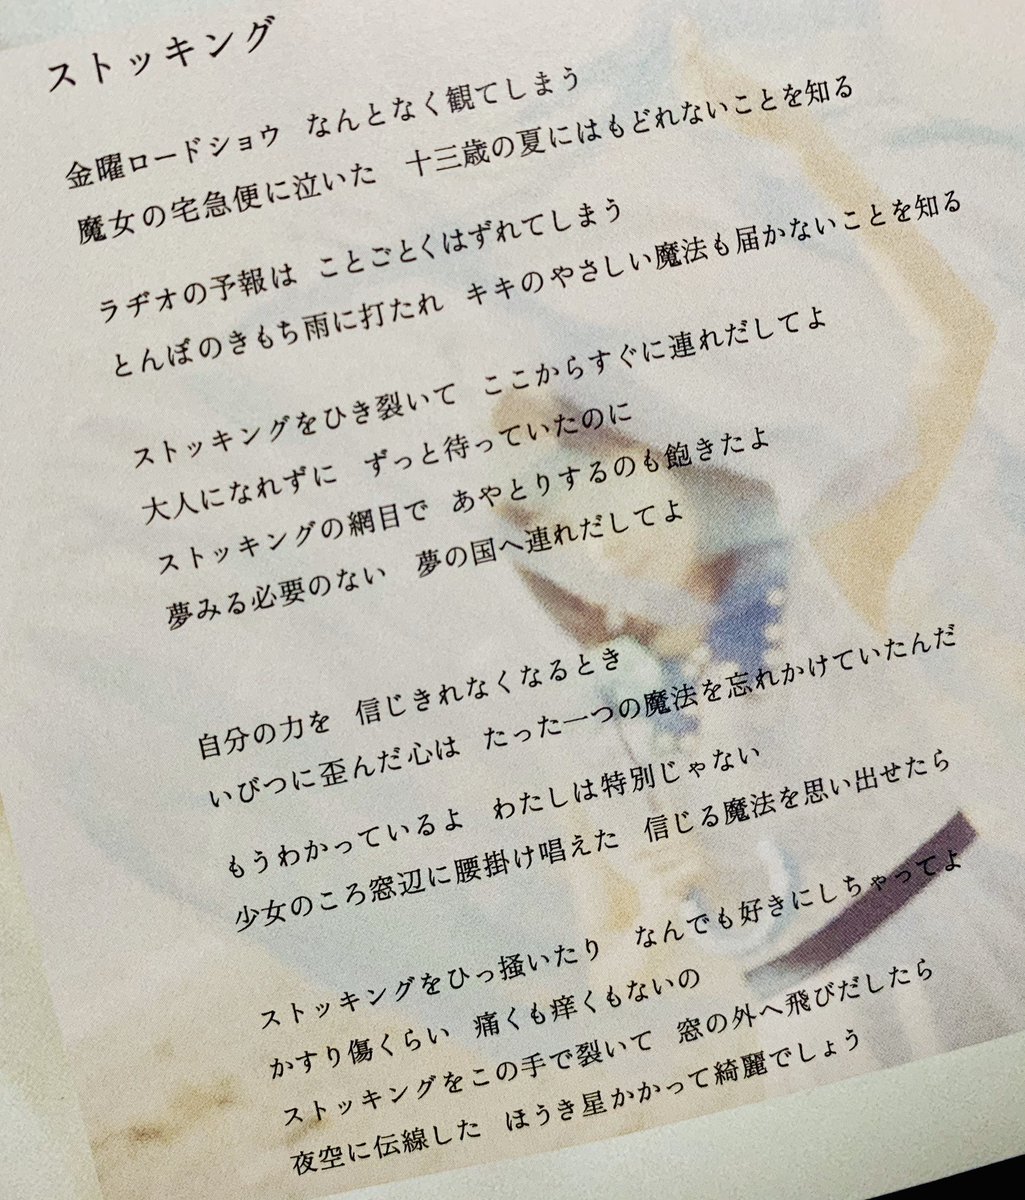 ストッキング
金曜ロードショウ　なんとなく観てしまう
魔女の宅急便に泣いた　十三歳の夏にはもどれないことを知る
ラヂオの予報は　ことごとくはずれてしまう
とんぼのきもち雨に打たれ　キキのやさしい魔法も届かないことを知る
ストッキングをひき裂いて　ここからすぐに連れだしてよ
大人になれずに　ずっと待っていたのに
ストッキングの網目で　あやとりするのも飽きたよ
夢みる必要のない　夢の国へ連れだしてよ
自分の力を　信じきれなくなるとき
いびつに歪んだ心は　たった一つの魔法を忘れかけていたんだ
もうわかっているよ　わたしは特別じゃない
少女のころ窓辺に腰掛け唱えた　信じる魔法を思い出せたら
ストッキングをひっ掻いたり　なんでも好きにしちゃってよ
かすり傷くらい　痛くも痒くもないの
ストッキングをこの手で裂いて　窓の外へ飛びだしたら
夜空に伝線した　ほうき星かかって綺麗でしょう